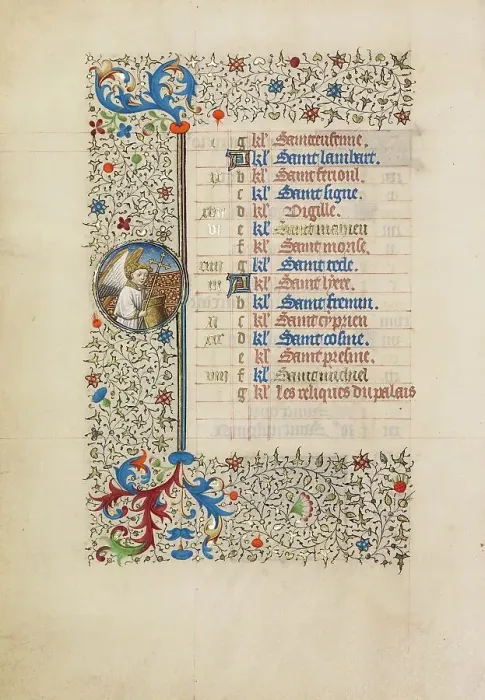 g kl' Sainteufenne.
A kl' Saint lambart.
b kl' Saint ferioul.
c kl' Saint signe.
d kl' Vigille.
vi e kl' Saint mahieu
f kl' Saint morise.
xiiii g kl' Saint tecle.
iii A kl' Saint lyere.
b kl' Saint fremin.
xi c kl' Saint cyprien
xix d kl' Saint cosme.
e kl' Saint presme.
viii f kl' Saint michiel
g kl' Les reliques du palais